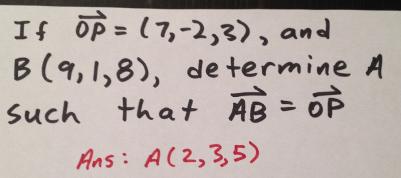 If OP→ = (7,-2,3), and
B(9,1,8), determine A
such that AB→ = OP→
Ans: A(2,3,5)